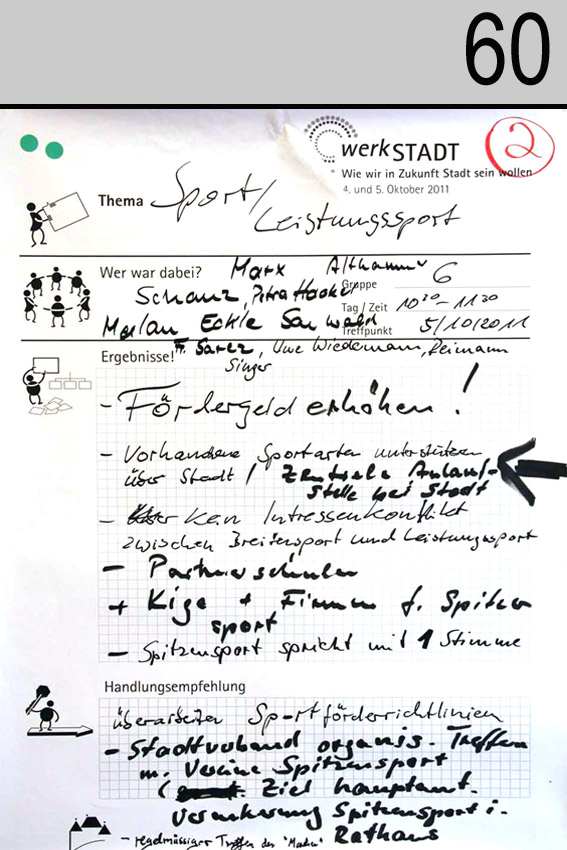 60
werkSTADT
2
Wie wir in Zukunft Stadt sein wollen
4. und 5. Oktober 2011
Thema Sport/
Leistungssport
Wer war dabei? Marx Althammer
Gruppe 6
Schanz, Petra
Tag / Zeit 10³⁰ – 11³⁰
Eckle
Treffpunkt 5/10/2011
Ergebnisse! Uwe Wiedemann, Reimann
Singer
- Fördergeld erhöhen!
- Vorhandene Sportarten unterstützen
über Stadt / Zentrale Anlauf-
stelle bei Stadt
- Kein Intressenkonflikt
zwischen Breitensport und Leistungssport
- Partnerschulen
+ Kige + Firmen f. Spitzen
sport
- Spitzensport spricht mit 1 Stimme
Handlungsempfehlung
überarbeiten Sportförderrichtlinien
- Stadtverband organis. Treffen
m. Vereine Spitzensport
( Ziel hauptamt.
Verankerung Spitzensport i.
Rathaus
- regelmässiger Treffen der "Macher"